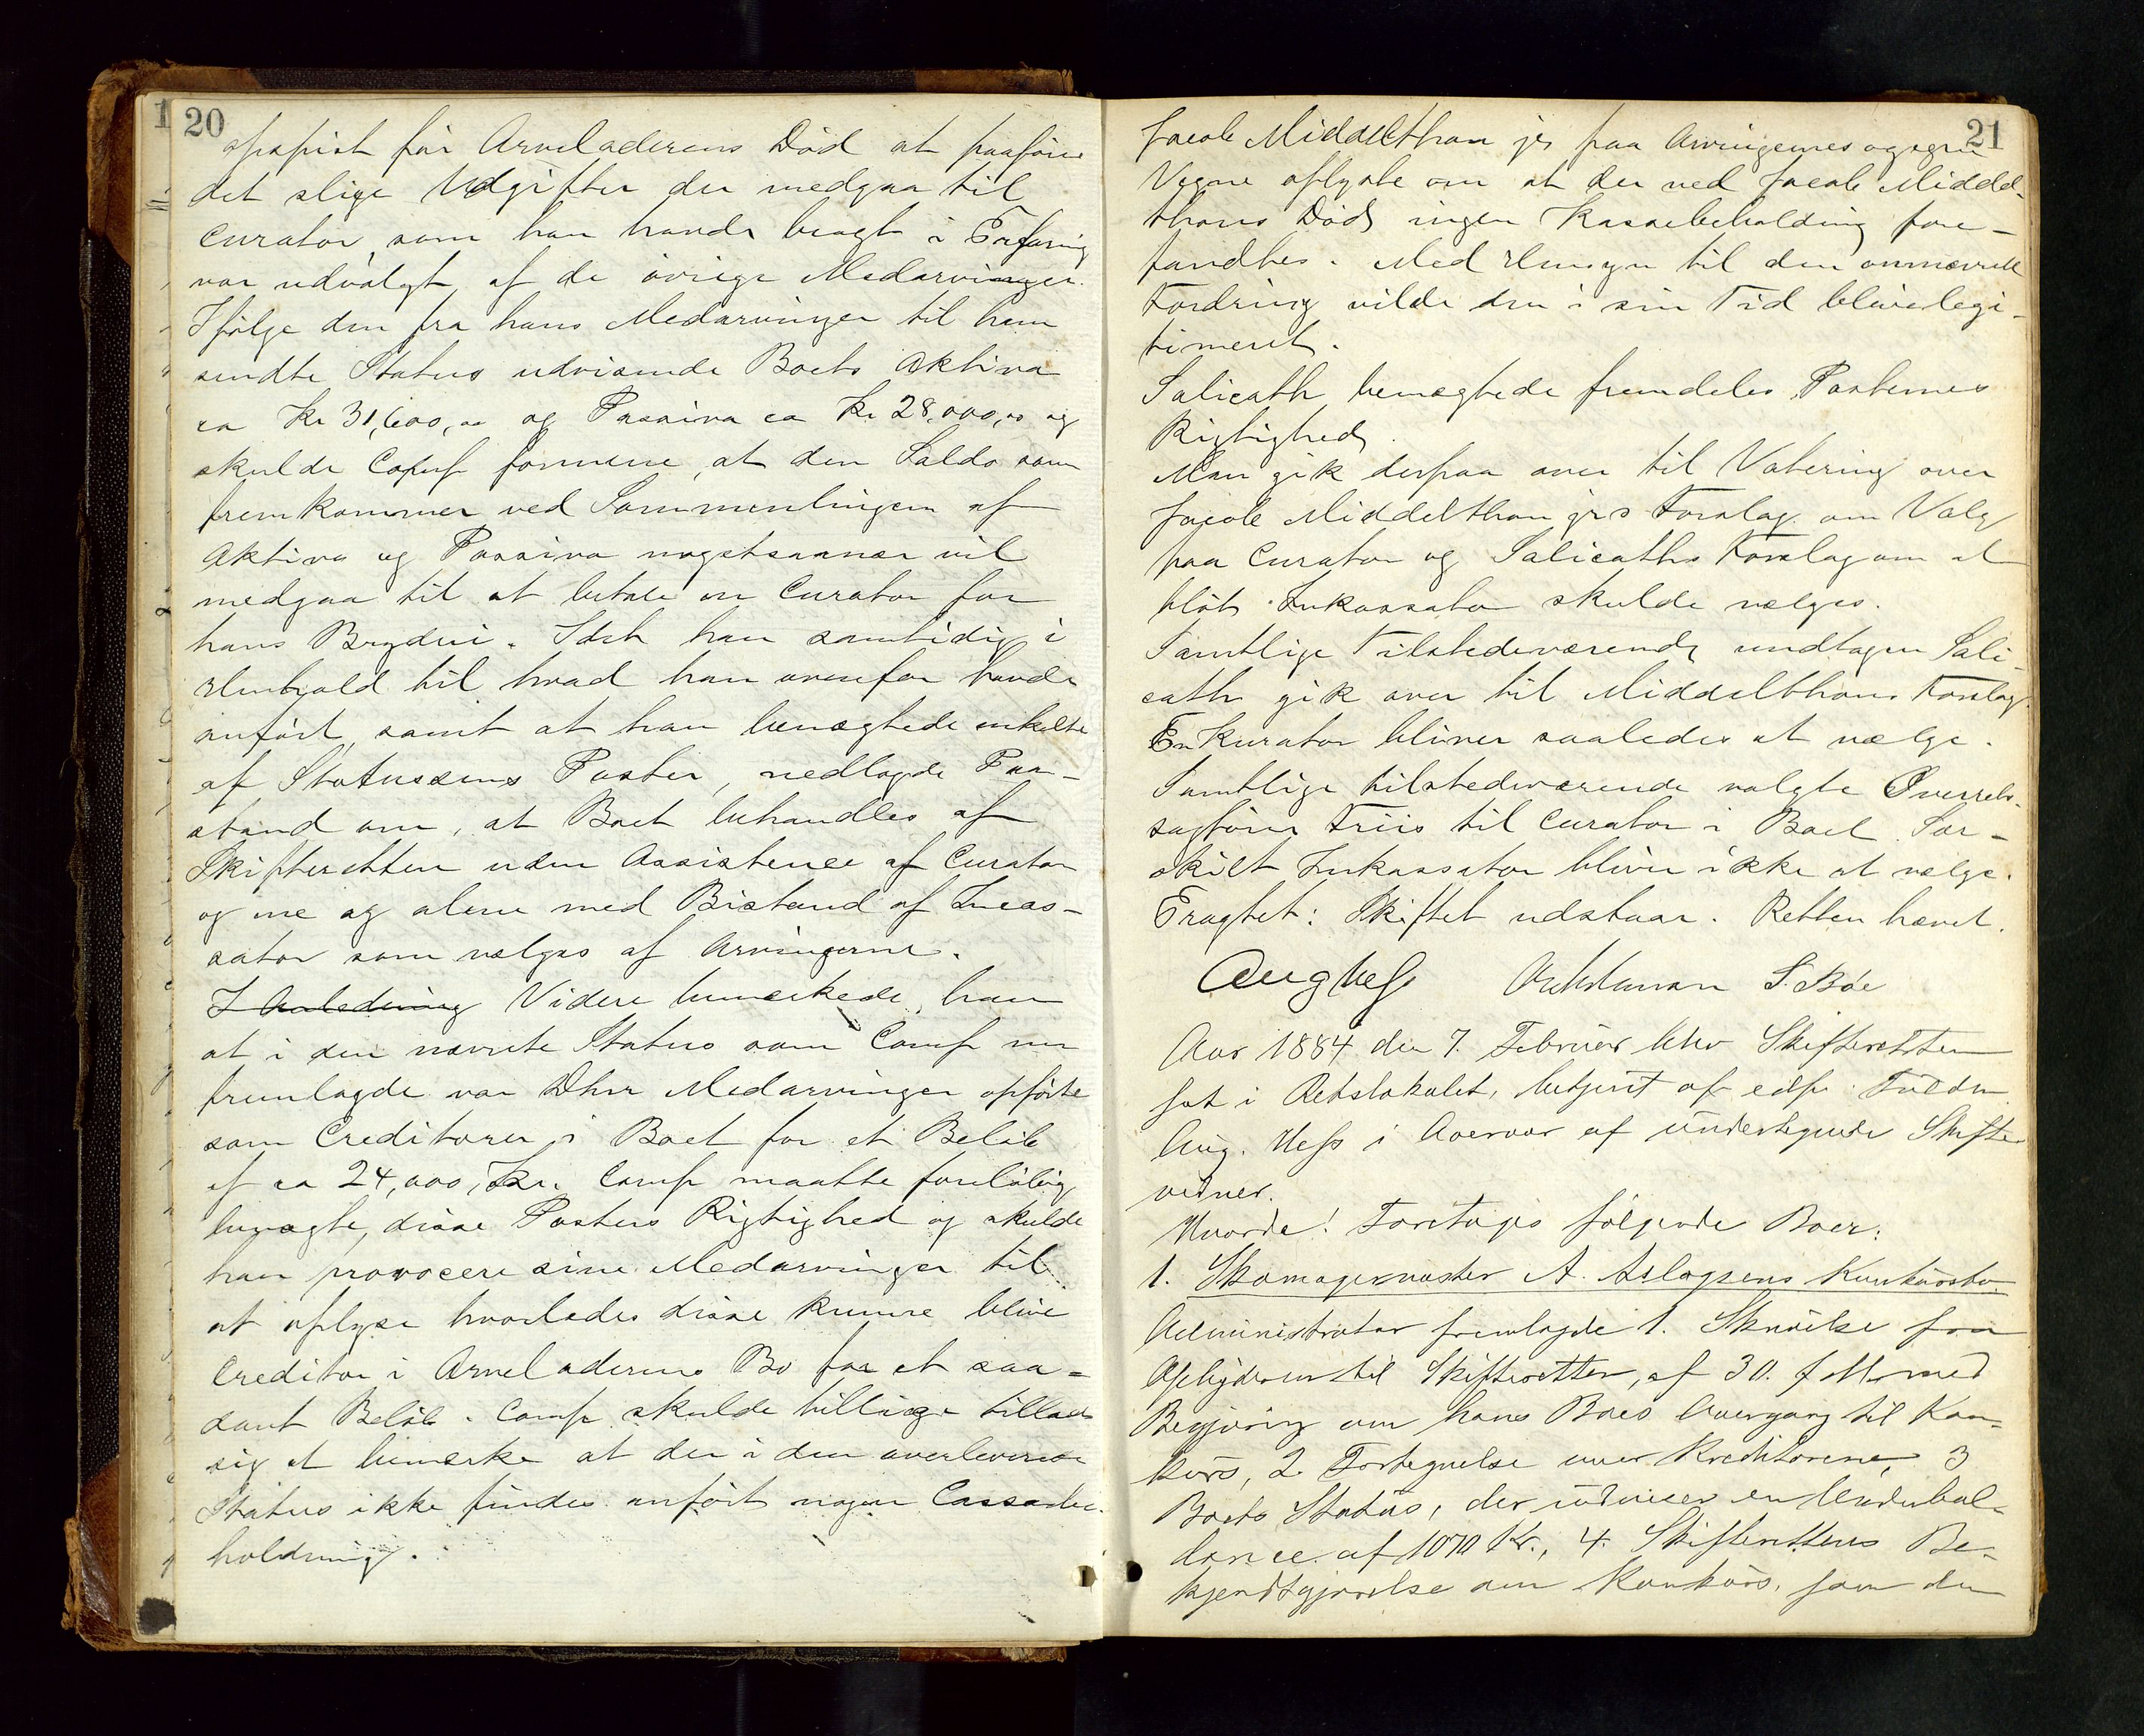 20
for Arveladerens Død at paaføre
det slige Udgifter der medgaa til
Curator som han havde bragt i Erfaring
var udvalgt af de øvrige Medarvinger.
Ifølge den fra hans Medarvinger til ham
sendte Status udvisende Boets Aktiva
ca Kr 31,600,00 og Passiva ca Kr 28,000,00 og
skulde Comp formene, at den Saldo som
fremkommer ved Sammenligningen af
Aktiva og Passiva nogetsaanær vil
medgaa til at betale en Curator for
hans Bryderi. Idet han samtidig i
Henhold til hvad han ovenfor havde
anført, samt at han benægtede enkelte
af Statussens Poster, nedlagde Paa-
stand om, at Boet behandles af
Skifteretten uden Assistence af Curator
og alene med Bistand af Incas-
sator som vælges af Arvingerne.
I Anledning Videre bemærkede han
at i den nævnte Status som Comp nu
fremlagde var Dhrr Medarvinger opførte
som Creditorer i Boet for et Beløb
af ca 24,000, Kr. Comp maatte foreløbig
benægte, disse Posters Rigtighed og skulde
han provocere sine Medarvinger til
at oplyse hvorledes disse kunne blive
Creditor i Arveladerens Bo for et saa-
dant Beløb. Comp skulde tillige tillade
sig at bemærke at der i den overleverede
Status ikke findes anført nogen Cassabe-
holdning.
21
Jacob Middelthon jr paa Arvingernes og egne
Vegne oplyste om at der ved Jacob Middel-
thons Død ingen Kassebeholdning fore-
fandtes. Med Hensyn til den omnævnte
Fordring vilde den i sin Tid blive legi-
timeret.
Salicath benægtede fremdeles Posternes
Rigtighed.
Man gik derpaa over til Votering over
Jacob Middelthon jrs Forslag om Valg
paa Curator og Salicaths Forslag om at
blot Inkassator skulde vælges.
Samtlige Tilstedeværende undtagen Sali-
cath gik over til Middelthons Forslag.
En Kurator bliver saaledes at vælge.
Samtlige tilstedeværende valgte Overrets-
sagfører Friis til Curator i Boet. Sær-
skilt Inkassator bliver ikke at vælge.
Eragtet: Skiftet udstaar. Retten hævet.
Aug Hess S. Bøe
Aar 1884 den 7. Februar blev Skifteretten
sat i Retslokalet, betjent af edsv. Fuldm.
Aug. Hess i Overvær af undertegnede Skifte
vidner.
Hvorda! Foretoges følgende Boer:
1. Skomagermester A. Aslagsens Konkursbo.
Administrator fremlagde 1. Skrivelse fra
til Skifteretten, af 30. f. M. med
Begjæring om hans Boes Overgang til Kon-
kurs, 2. Fortegnelse over Kreditorerne, 3
Boets Status, der udviser en Underbal-
lance af 1070 Kr., 4. Skifterettens Be-
kjendtgjørelse om Konkurs, som den